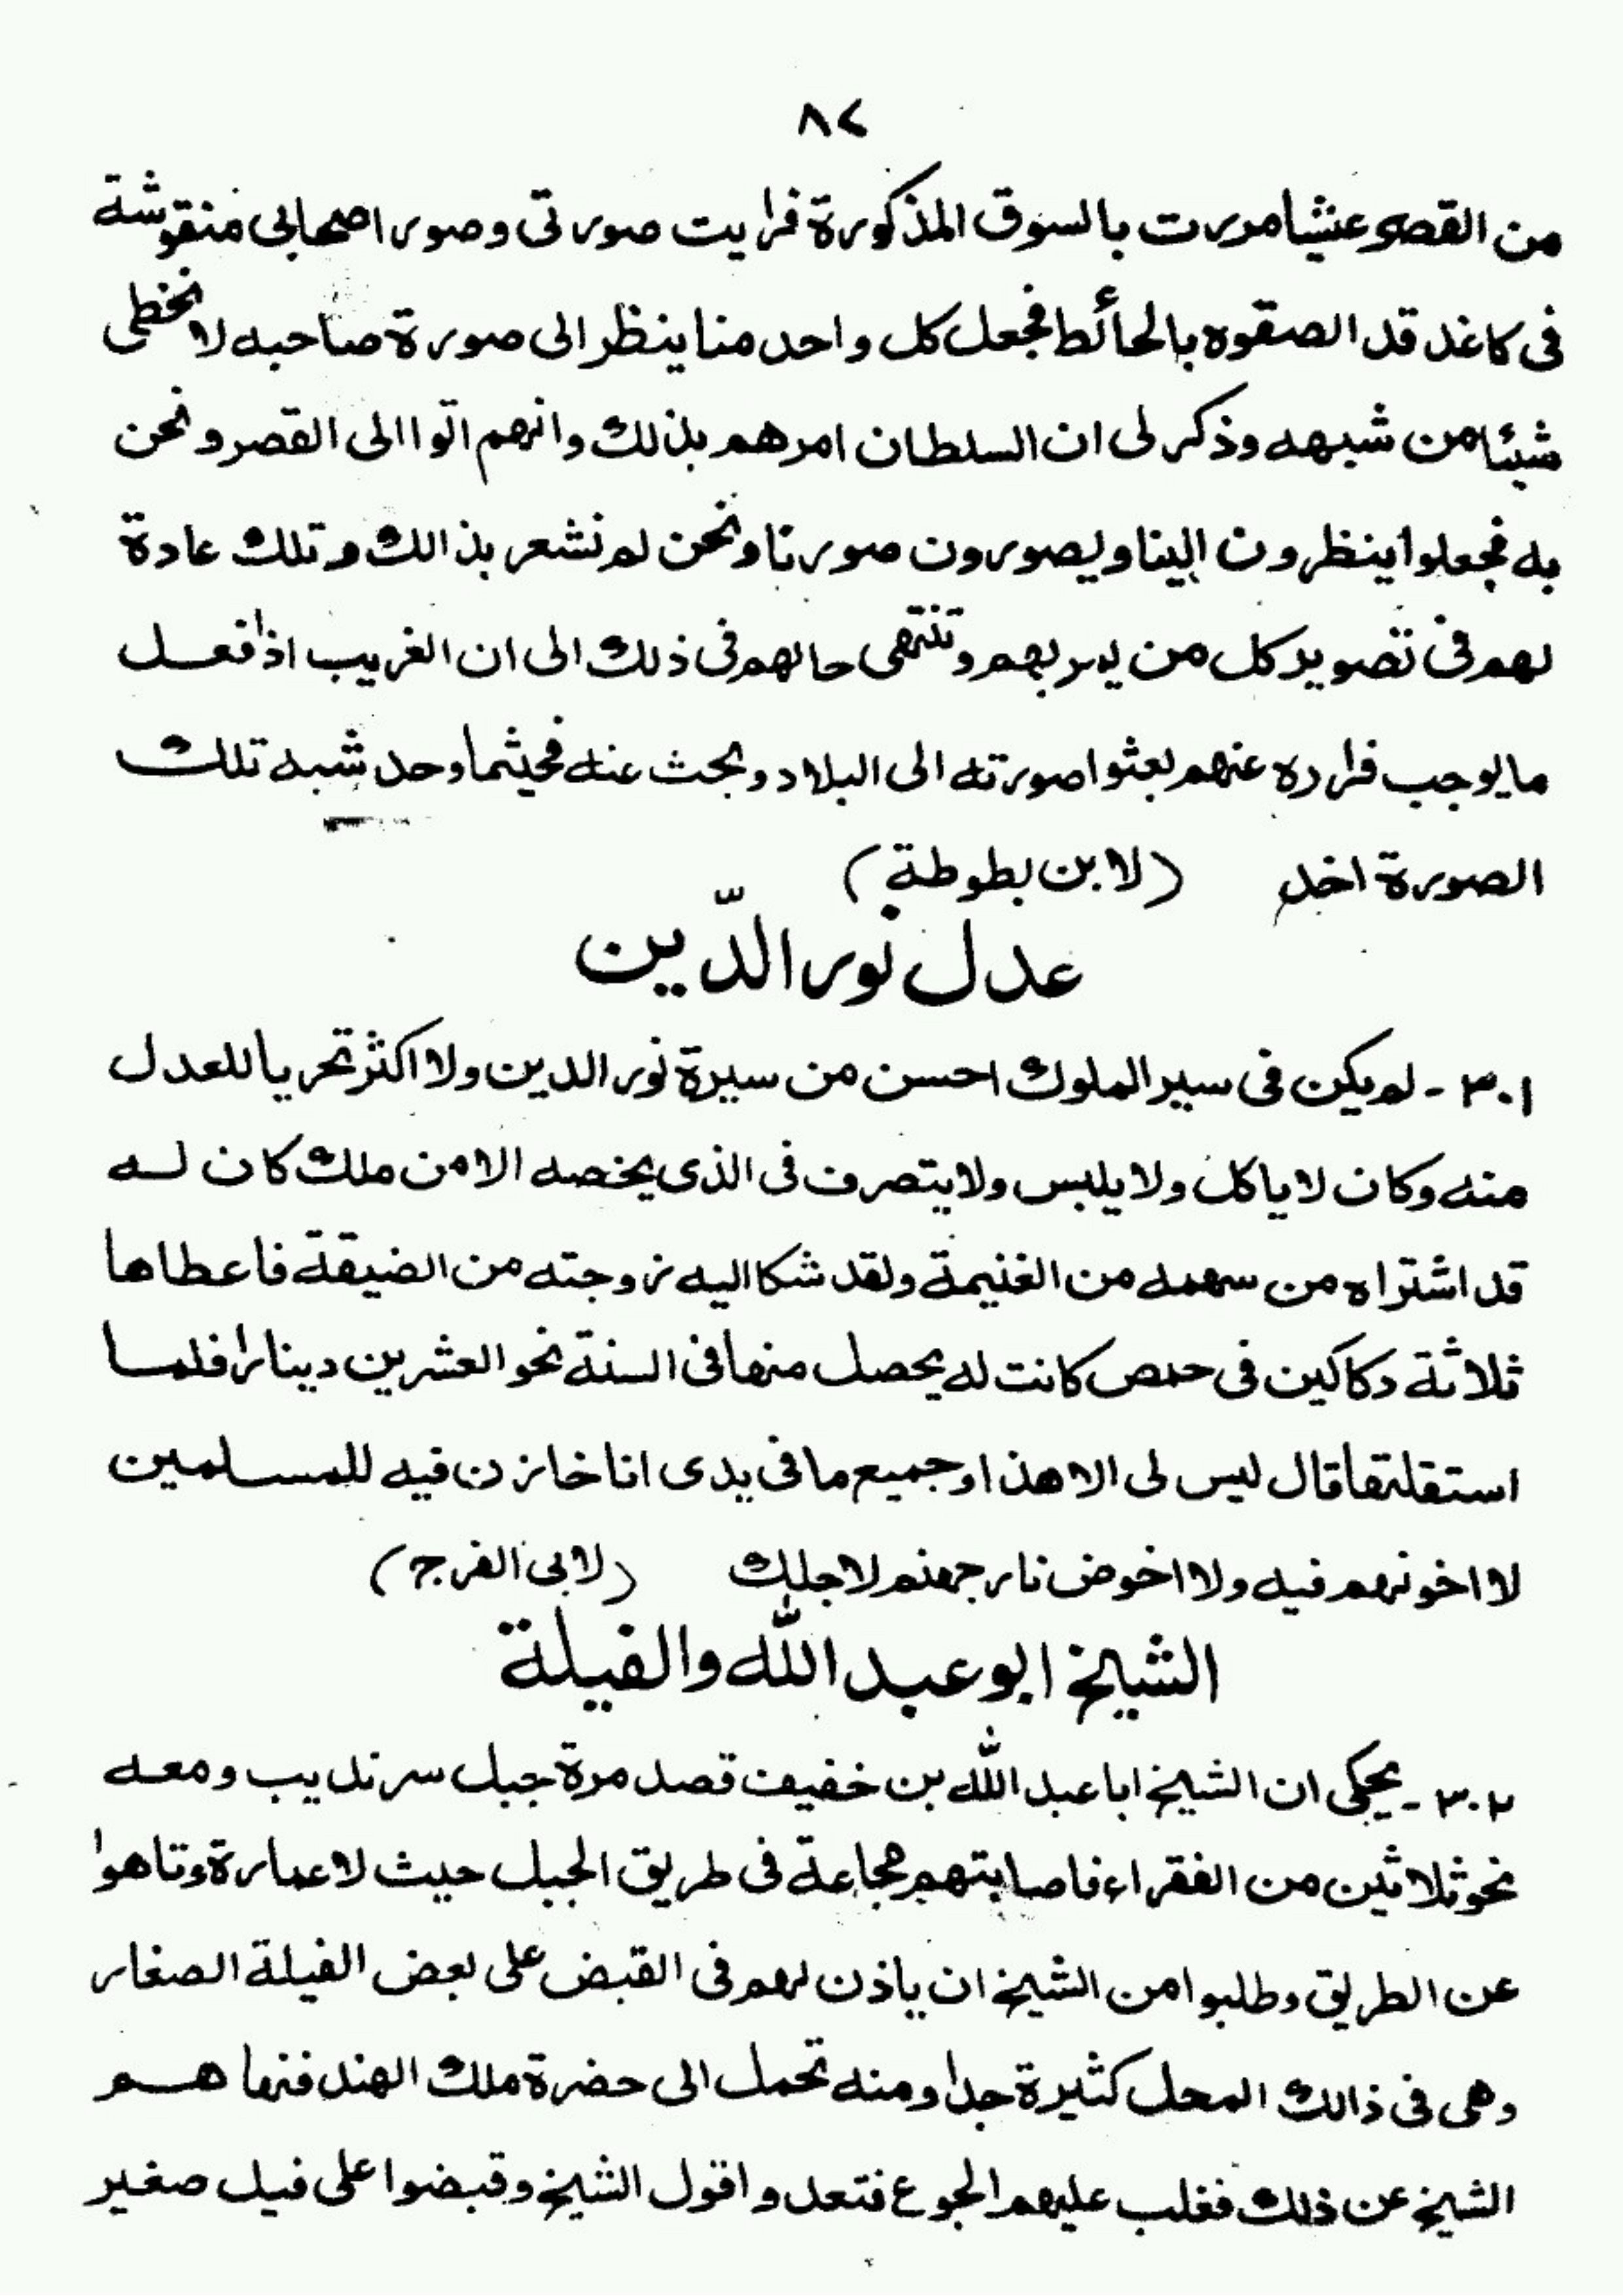 ٨٢
من القصر عشيا مررت بالسوق المذكورة فرايت صورتى وصور اصحابى منقوشة
فى كاغد قد الصقوه بالحائط فجعل كل واحد منا ينظر الى صورة صاحبه لا تخطى
شيئا من شبهه وذكر لى ان السلطان امرهم بذلك وانهم اتوا الى القصر ونحن
به فجعلوا ينظرون الينا ويصورون صورنا ونحن لم نشعر بذالك وتلك عادة
لهم فى تصوير كل من يمر بهم وتنتهى حالهم فى ذلك الى ان الغريب اذا فعل
ما يوجب فراره عنهم بعثوا صورته الى البلاد وبحث عنه فحيثما وجد شبه تلك
الصورة اخذ (لابن بطوطة)
عدل نور الدّين
٣٠١ - لم يكن فى سير الملوك احسن من سيرة نور الدين ولا اكثر تحريا للعدل
منه وكان لا ياكل ولا يلبس ولا يتصرف فى الذى يخصه الا من ملك كان له
قد اشتراه من سهمه من الغنيمة ولقد شكا اليه زوجته من الضيقة فاعطاها
ثلاثة دكاكين فى حمص كانت له يحصل منها فى السنة نحو العشرين دينارا فلما
استقلتها قال ليس لى الا هذا وجميع ما فى يدى انا خازن فيه للمسلمين
لا اخونهم فيه ولا اخوض نار جهنم لاجلك (لابى الفرج)
الشيخ ابو عبد الله والفيلة
٣٠٢ - يحكى ان الشيخ ابا عبد الله بن خفيف قصد مرة جبل سرنديب ومعه
نحو ثلاثين من الفقراء فاصابتهم مجاعة فى طريق الجبل حيث لا عمارة وتاهوا
عن الطريق وطلبوا من الشيخ ان ياذن لهم فى القبض على بعض الفيلة الصغار
وهى فى ذالك المحل كثيرة جدا ومنه تحمل الى حضرة ملك الهند فنهاهم
الشيخ عن ذلك فغلب عليهم الجوع فتعدوا قول الشيخ وقبضوا على فيل صغير